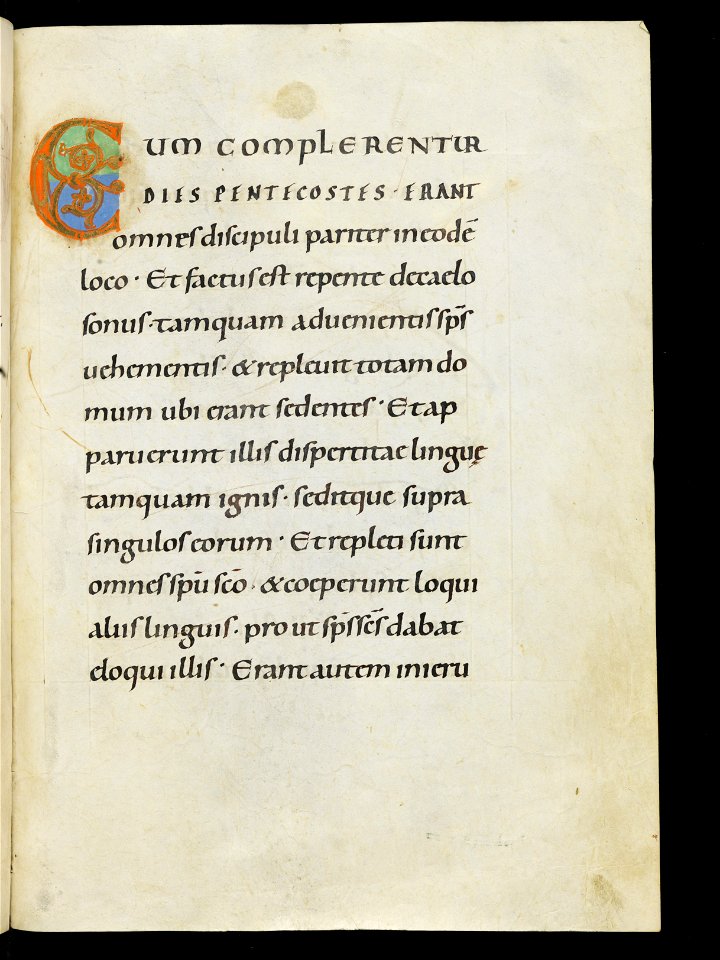 CUM COMPLERENTUR
DIES PENTECOSTES · ERANT
omnes discipuli pariter in eodē
loco · Et factus est repente de caelo
sonus · tamquam aduenientis sp̄s
uehementis · & repleuit totam do
mum ubi erant sedentes · Et ap
paruerunt illis dispertitae linguę
tamquam ignis · seditque supra
singulos eorum · Et repleti sunt
omnes sp̄u sc̄o · & coeperunt loqui
aliis linguis · pro ut sp̄s sc̄s dabat
eloqui illis · Erant autem in ieru